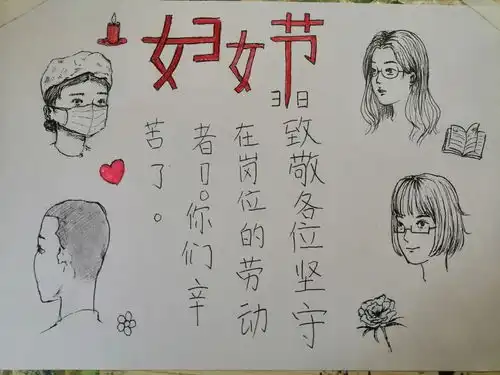 妇女节
3日
致敬各位坚守
在岗位的劳动
者们。你们辛
苦了。